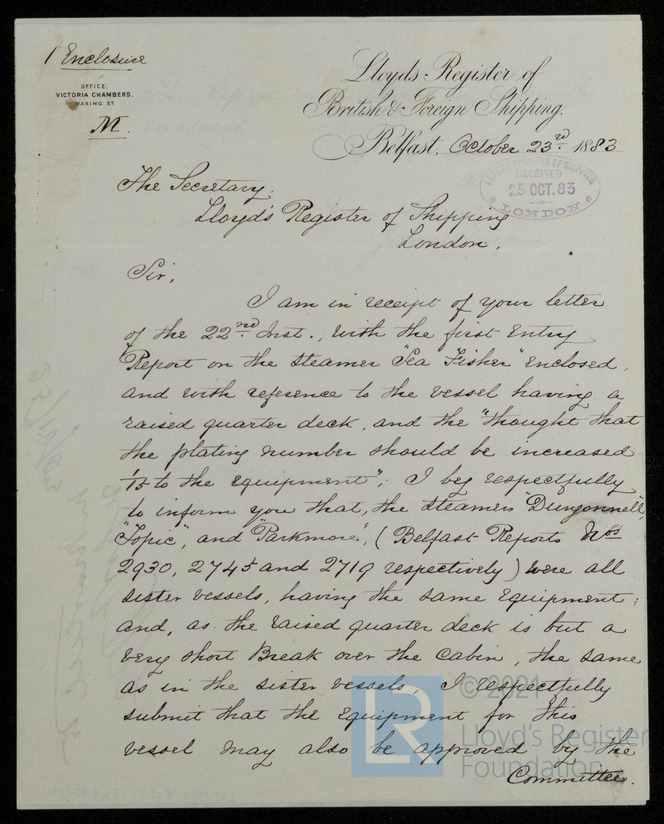 1 Enclosure
OFFICE,
VICTORIA CHAMBERS.
WARING ST.
M.
Lloyds Register of
British & Foreign Shipping.
Belfast, October 23rd 1883
RECEIVED
25 OCT. 83
LONDON
The Secretary,
Lloyd's Register of Shipping
London.
Sir,
I am in receipt of your letter
of the 22nd Inst., with the first Entry
Report on the steamer "Sea Fisher" enclosed,
and with reference to the vessel having a
raised quarter deck, and the "thought that
the plating number should be increased
1/5 to the equipment"; I beg respectfully
to inform you that, the steamers "Dungonnell",
"Topic", and "Parkmore", (Belfast Reports Nos
2930, 2745 and 2719 respectively) were all
sister vessels, having the same equipment;
and, as the raised quarter deck is but a
very short Break over the Cabin, the same
as in the sister vessels, I respectfully
submit that the equipment for this
vessel may also be approved by the
Committee.
© 2021
LR
Lloyd's Register
Foundation